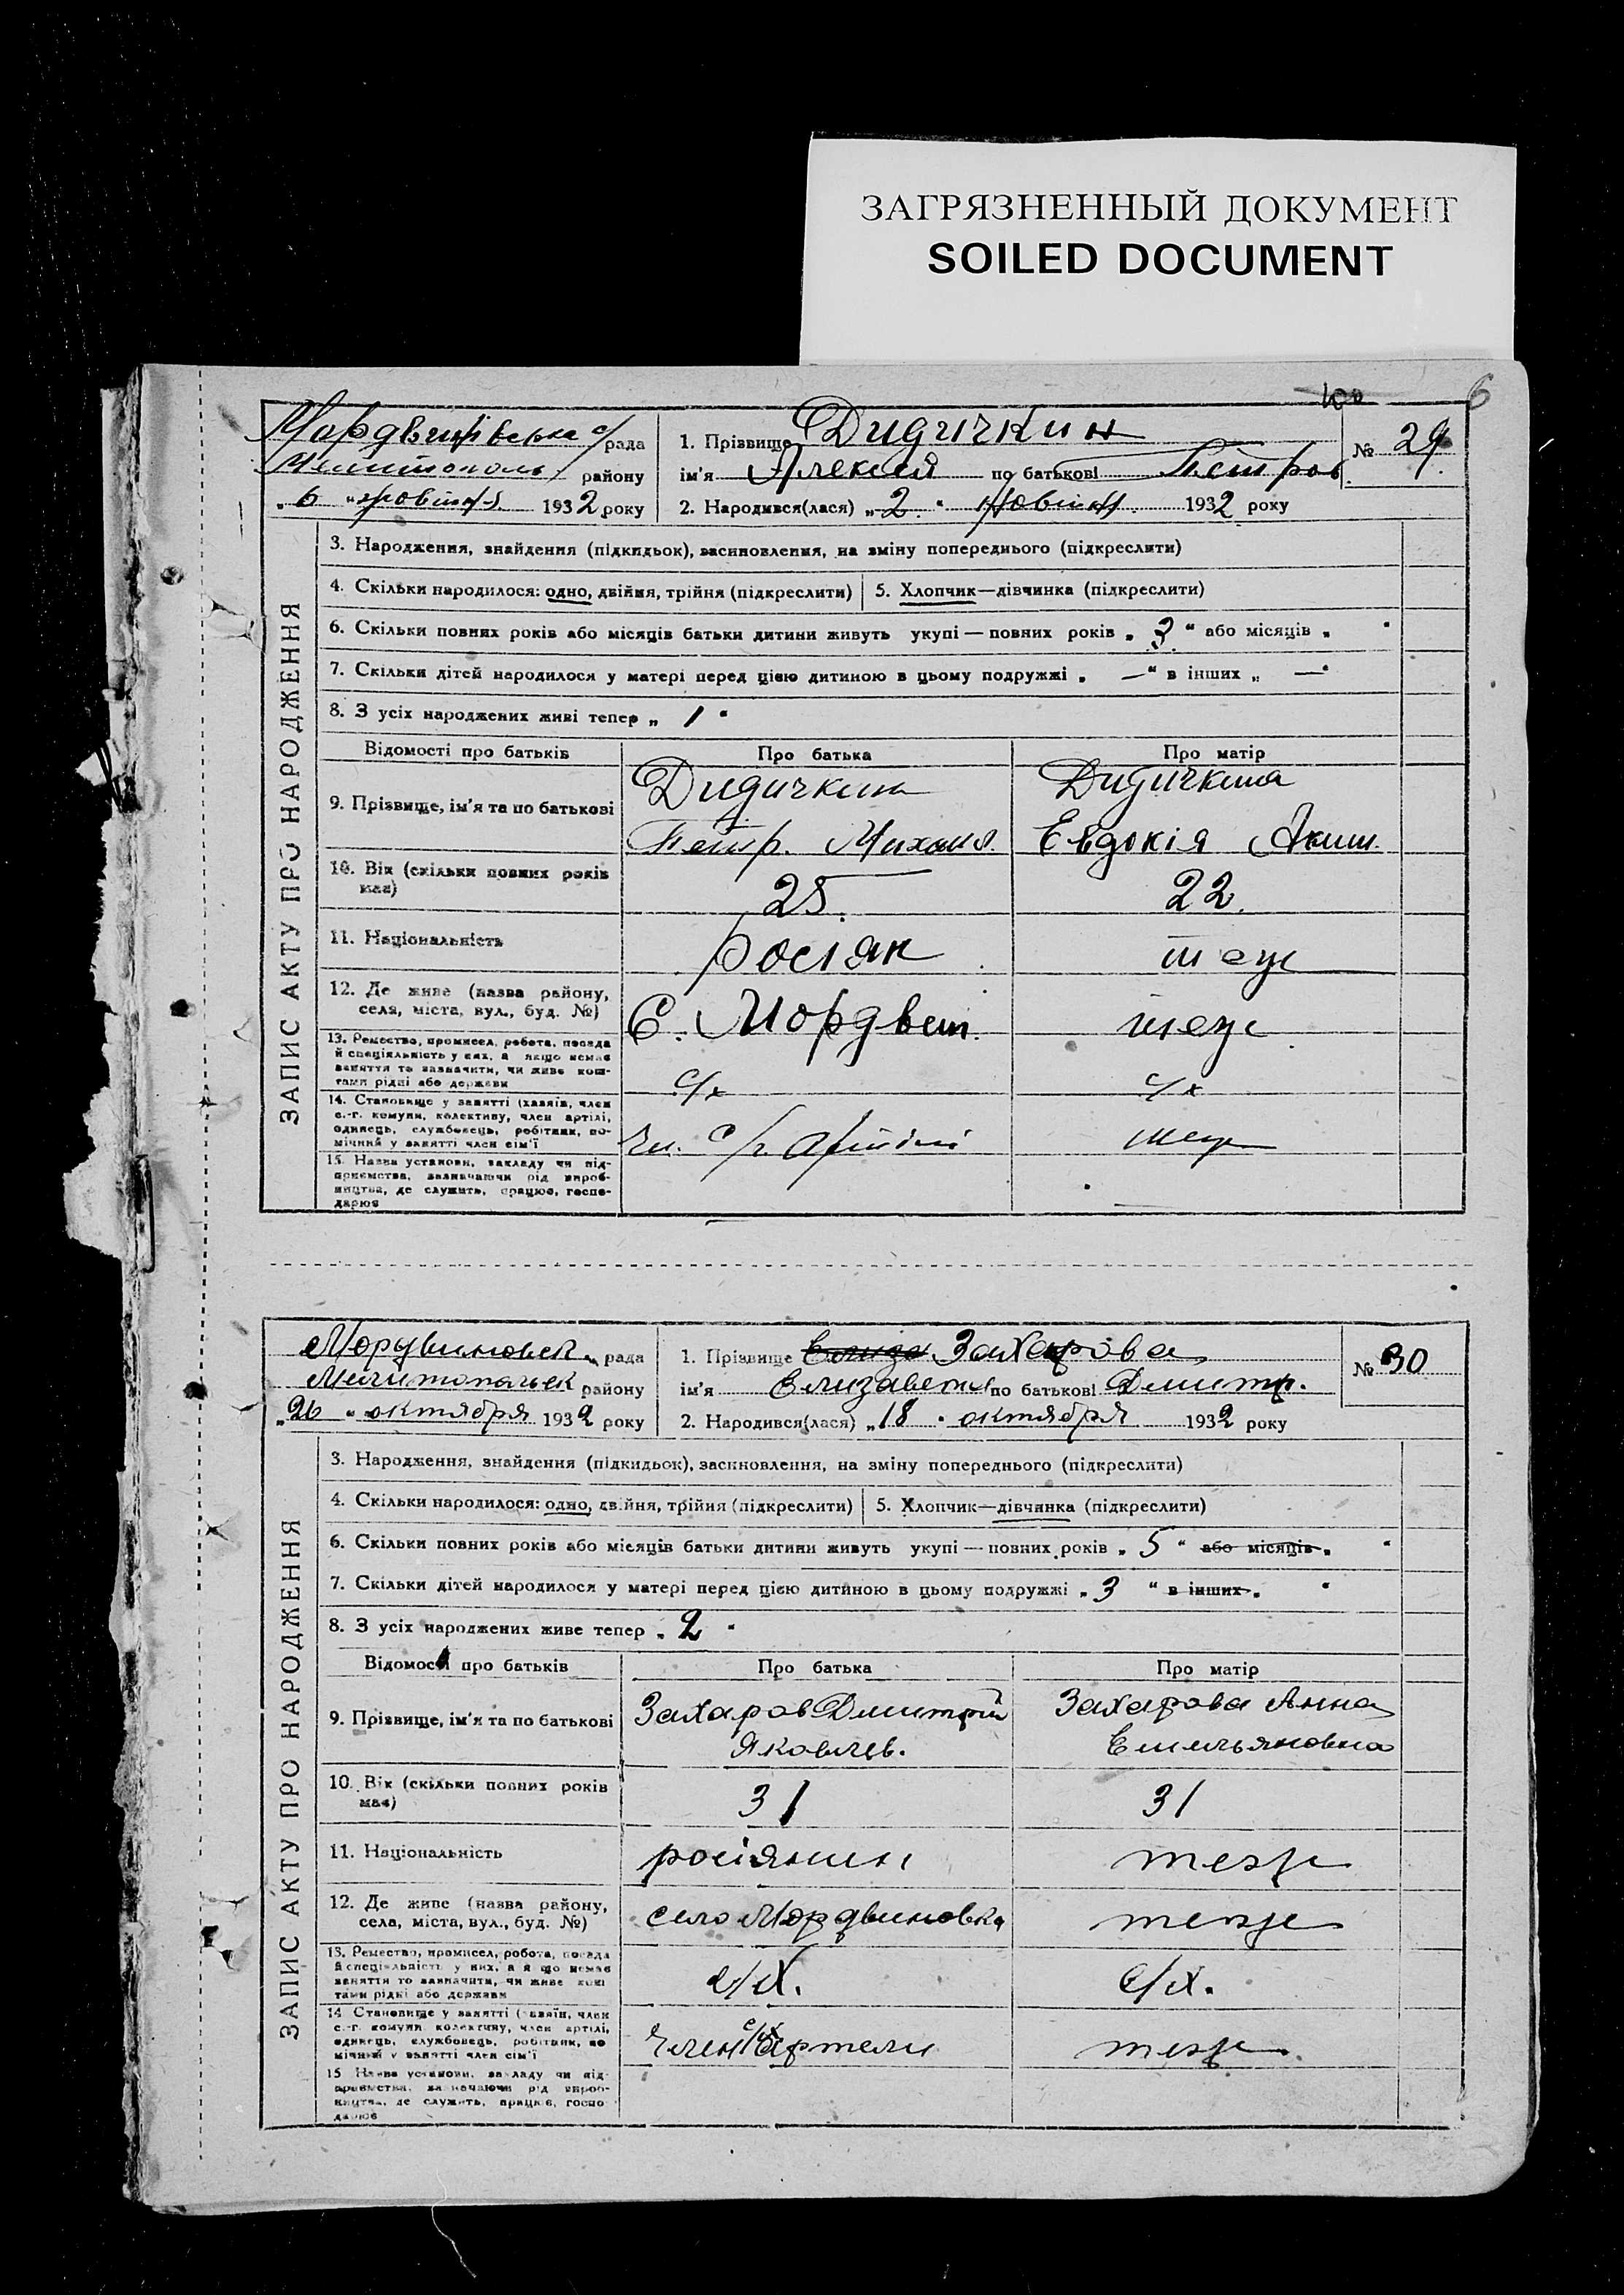 ЗАГРЯЗНЕННЫЙ ДОКУМЕНТ
SOILED DOCUMENT
6
Мордвинівська с/рада
Мелитополь району
„6 " жовтня 1932 року
1. Прізвище Дидичкин
ім'я Алексей по батькові Петров.
2. Народився(лася) „2." Жовтня 1932 року
№ 29
ЗАПИС АКТУ ПРО НАРОДЖЕННЯ
3. Народження, знайдення (підкидьок), засиновлення, на зміну попереднього (підкреслити)
4. Скільки народилося: одно, двійня, трійня (підкреслити) 5. Хлопчик—дівчинка (підкреслити)
6. Скільки повних років або місяців батьки дитини живуть укупі — повних років „ 3 " або місяців „ "
7. Скільки дітей народилося у матері перед цією дитиною в цьому подружжі „ — " в інших „ — "
8. З усіх народжених живі тепер „ 1 "
Відомості про батьків Про батька Про матір
9. Прізвище, ім'я та по батькові Дидичкин Дидичкина
Петр. Михайл. Евдокія Аким.
10. Вік (скільки повних років має) 25. 22.
11. Національність росіян теж
12. Де живе (назва району, села, міста, вул., буд. №) С. Мордвин. теж
13. Ремество, промисел, робота, посада й спеціяльність у них, а якщо немає заняття то зазначити, чи живе коштами рідні або держави с/х с/х
14. Становище у занятті (хазяїн, член с.-г. комуни, колективу, член артілі, одинець, службовець, робітник, помічний у занятті член сім'ї Чл. с/г. артілі теж
15. Назва установи, закладу чи підприємства, зазначаючи рід виробництва, де служить, працює, господарює
Мордвиновск. рада
Мелитопольск району
„26 " октября 1932 року
1. Прізвище Захарова
ім'я Елизавета по батькові Дмитр.
2. Народився(лася) „18 " октября 1932 року
№ 30
ЗАПИС АКТУ ПРО НАРОДЖЕННЯ
3. Народження, знайдення (підкидьок), засиновлення, на зміну попереднього (підкреслити)
4. Скільки народилося: одно, двійня, трійня (підкреслити) 5. Хлопчик—дівчинка (підкреслити)
6. Скільки повних років або місяців батьки дитини живуть укупі — повних років „ 5 " або місяців „ "
7. Скільки дітей народилося у матері перед цією дитиною в цьому подружжі „ 3 " в інших „ "
8. З усіх народжених живе тепер „ 2 "
Відомості про батьків Про батька Про матір
9. Прізвище, ім'я та по батькові Захаров Дмитрий Захарова Анна
Яковлев. Емельяновна
10. Вік (скільки повних років має) 31 31
11. Національність росіянин теж
12. Де живе (назва району, села, міста, вул., буд. №) село Мордвиновка тоже
13. Ремество, промисел, робота, посада й спеціяльність у них, а якщо немає заняття то зазначити, чи живе коштами рідні або держави с/х. с/х.
14. Становище у занятті (хазяїн, член с.-г. комуни, колективу, член артілі, одинець, службовець, робітник, помічний у занятті член сім'ї Член с/х артели теж
15. Назва установи, закладу чи підприємства, зазначаючи рід виробництва, де служить, працює, господарює